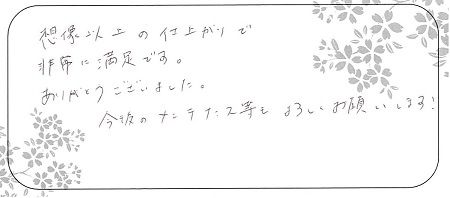 想像以上の仕上がりで
非常に満足です。
ありがとうございました。
今後のメンテナンス等もよろしくお願いします!